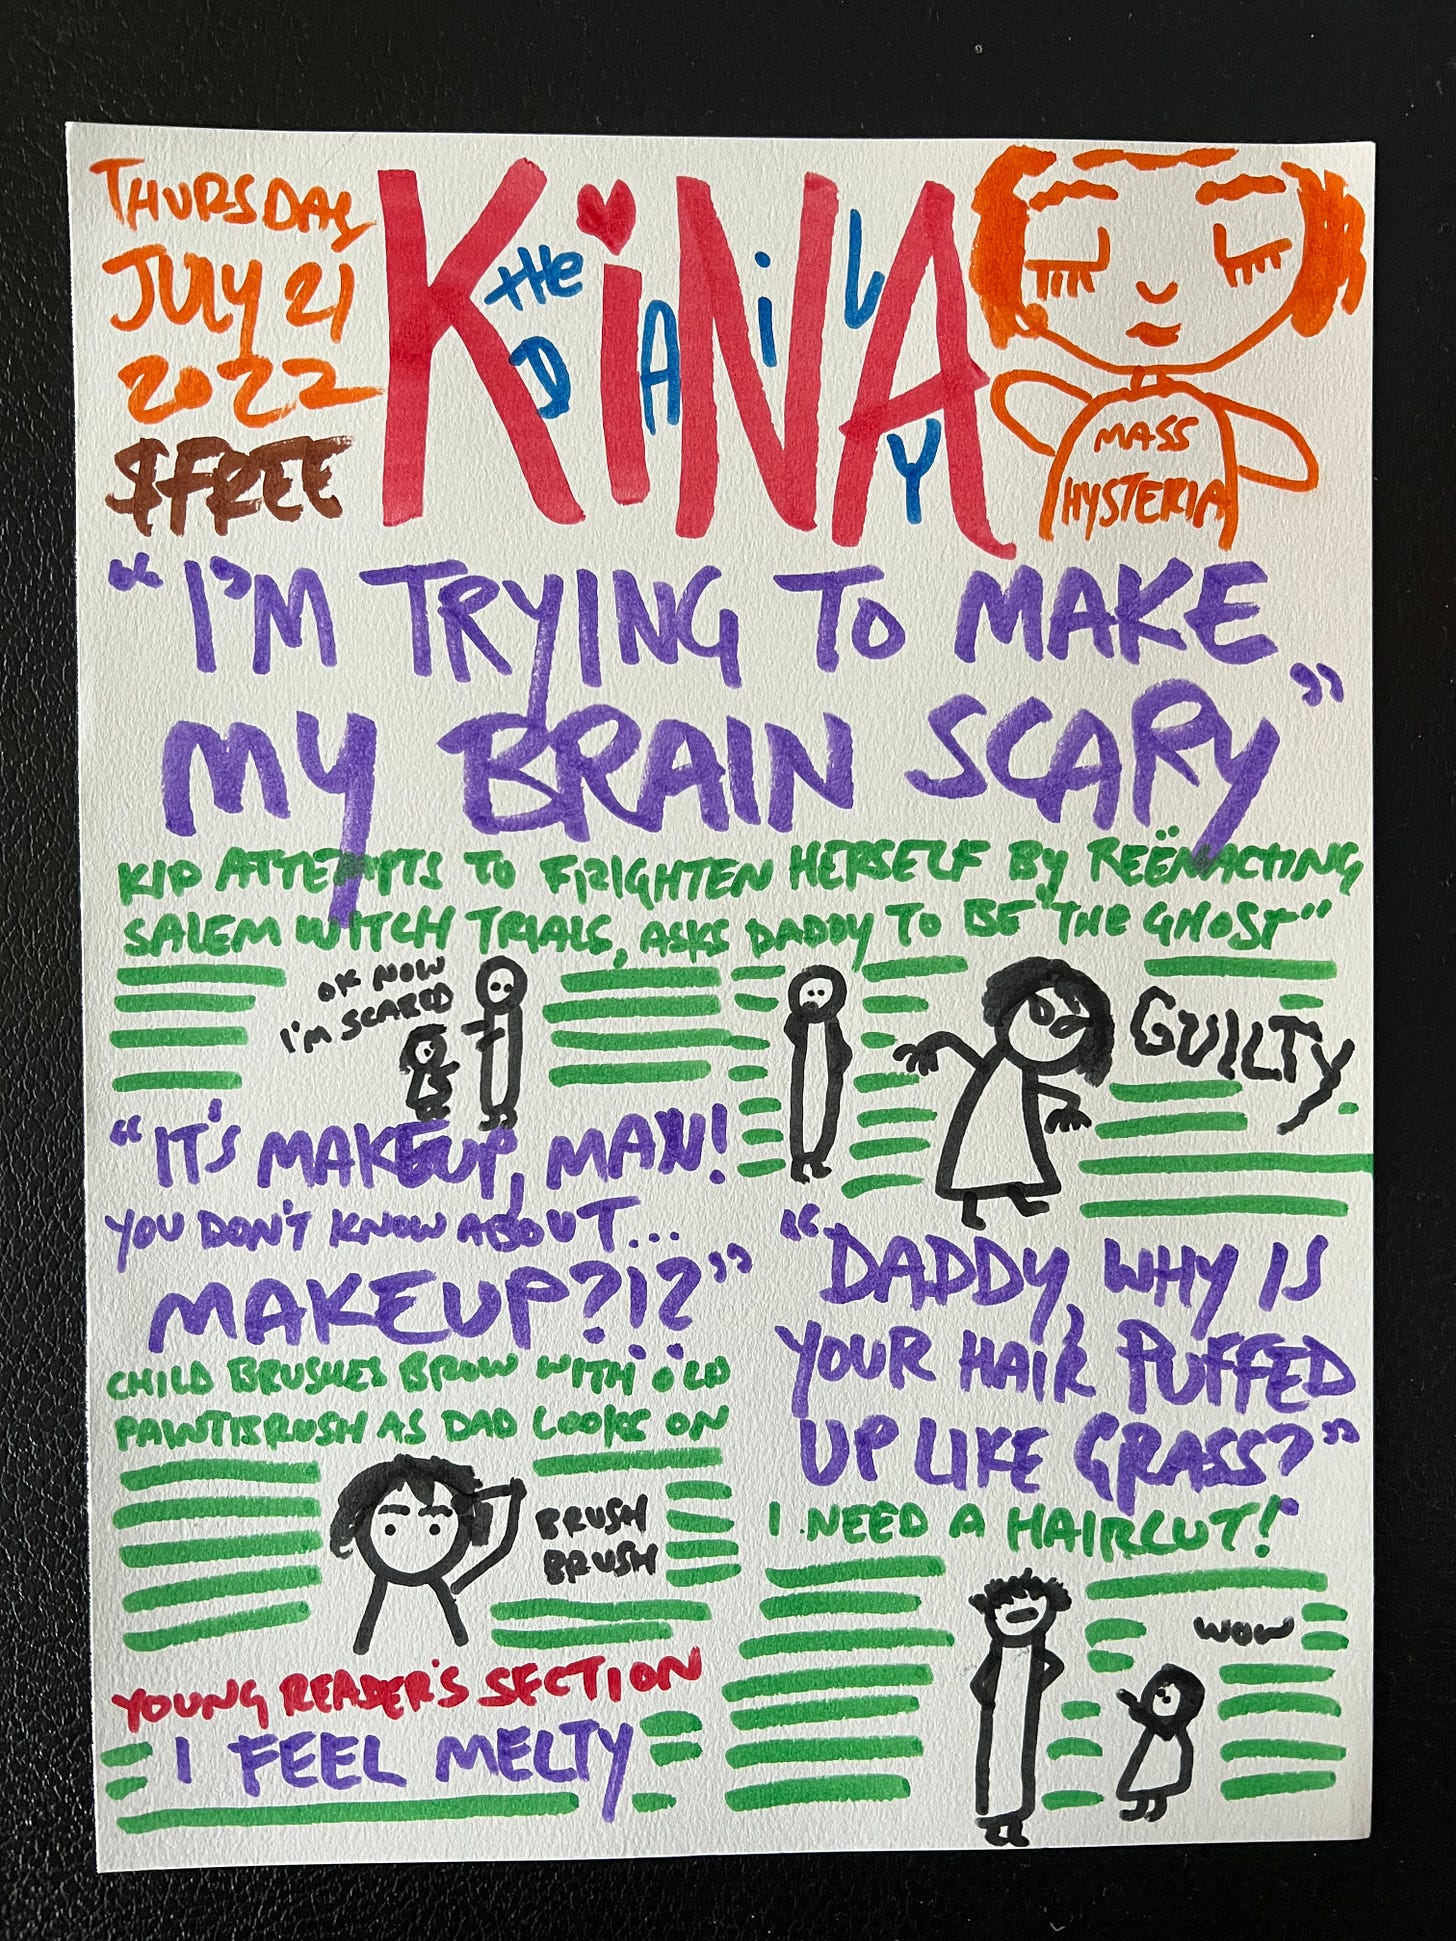 THURSDAY
JULY 21
2022
$FREE
THE DAILY
KiNA
MASS
HYSTERIA
“I'M TRYING TO MAKE
MY BRAIN SCARY”
KID ATTEMPTS TO FRIGHTEN HERSELF BY REËNACTING
SALEM WITCH TRIALS, ASKS DADDY TO BE “THE GHOST”
OK NOW
I'M SCARED
GUILTY
“IT'S MAKEUP, MAN!
YOU DON'T KNOW ABOUT...
MAKEUP?!?”
CHILD BRUSHES BROW WITH OLD
PAINTBRUSH AS DAD LOOKS ON
BRUSH
BRUSH
“DADDY, WHY IS
YOUR HAIR PUFFED
UP LIKE GRASS?”
I NEED A HAIRCUT!
WOW
YOUNG READER'S SECTION
I FEEL MELTY